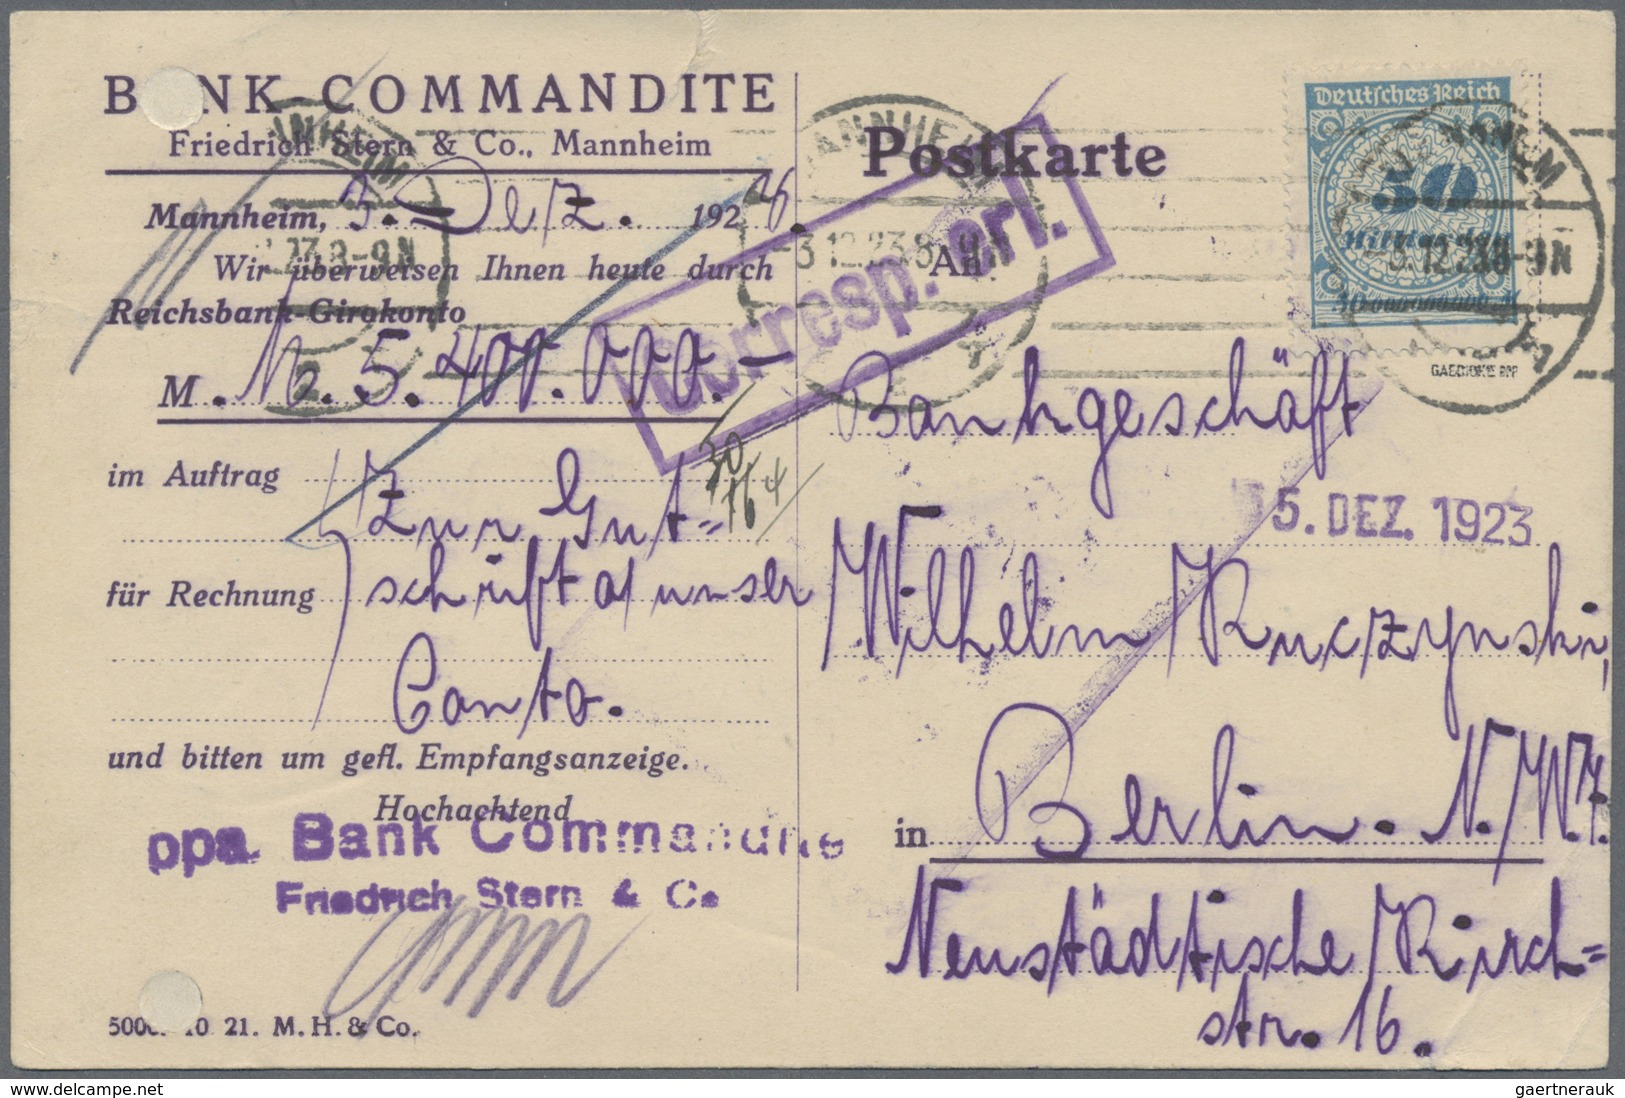 BANK-COMMANDITE
Friedrich Stern & Co., Mannheim
Mannheim, 3. Dez. 192
Wir überweisen Ihnen heute durch
Reichsbank-Girokonto
M. M. 5.400.000.-
im Auftrag
zur Gut=
für Rechnung schrift a/ unser
Conto.
und bitten um gefl. Empfangsanzeige.
Hochachtend
ppa. Bank Commandite
Friedrich Stern & Co
10 21. M. H. & Co.
Postkarte
An
Corresp. erl.
Deutsches Reich
50
Milliarden
MANNHEIM
-3.12.23 8-9N
GAEDICKE BPP
Bankgeschäft
5. DEZ. 1923
Wilhelm Kuczynski,
in Berlin. N./W.7.
Neustädtische Kirch=
str. 16.
gaertnerauk